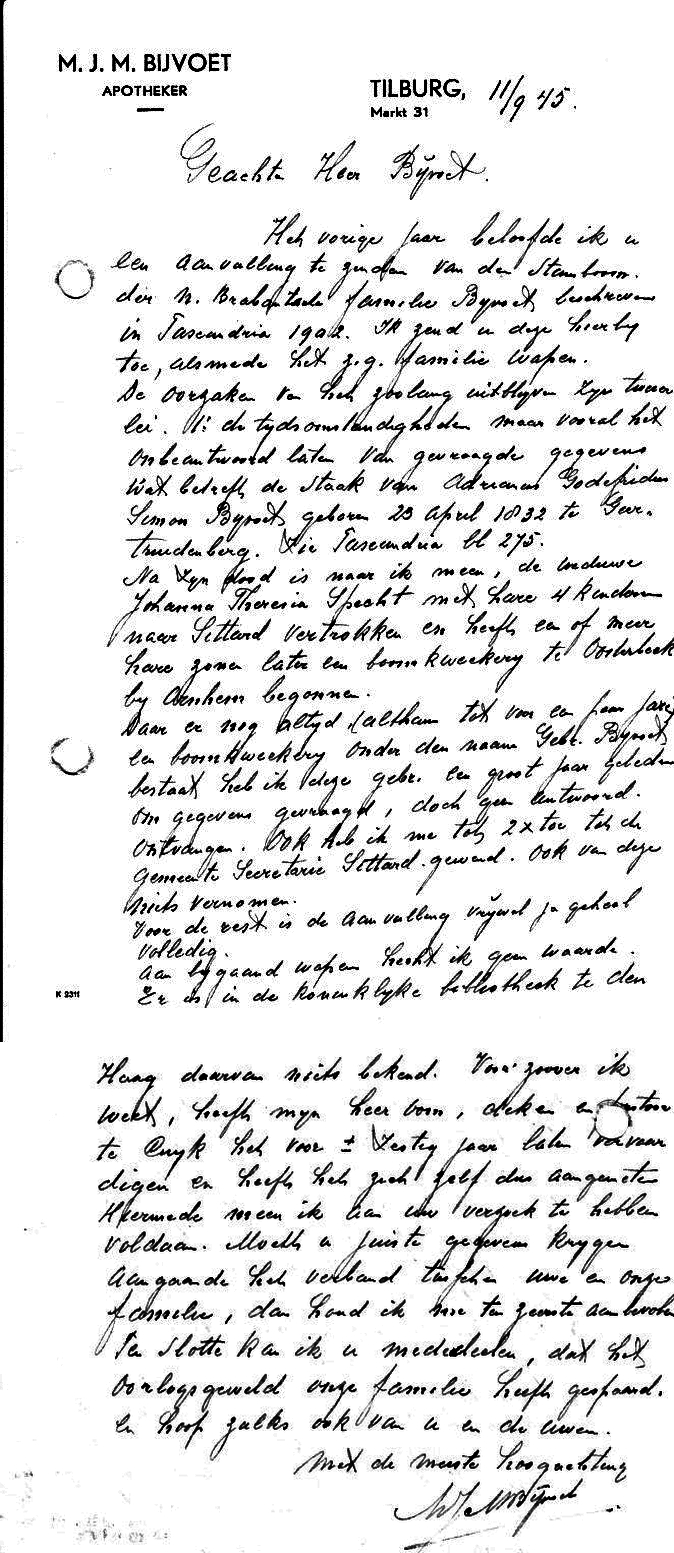 M. J. M. BIJVOET
APOTHEKER
TILBURG, 11/9 45.
Markt 31
Geachte Heer Bijvoet.
Het vorige jaar beloofde ik u
een aanvulling te zenden van den Stamboom.
der N. Brabantsche familie Byvoet beschreven
in Taxandria 1902. Ik zend u deze hierby
toe, alsmede het z.g. familie wapen.
De oorzaken van het zoolang uitblyven zyn tweeër
lei. 1: de tydsomstandigheden maar vooral het
onbeantwoord laten van gevraagde gegevens
wat betreft de Staak van Adrianus Godefridus
Simon Byvoet, geboren 23 April 1832 te Geer-
truidenberg. Zie Taxandria bl 275.
Na zyn dood is naar ik meen, de weduwe
Johanna Theresia Specht met hare 4 kinderen
naar Sittard vertrokken en heeft een of meer
hare zonen later een boomkweekery te Oosterbeek
by Arnhem begonnen.
Daar er nog altyd (althans tot voor een paar jaar)
een boomkweekery onder den naam Gebr. Byvoet
bestaat heb ik deze gebr. een groot jaar geleden
om gegevens gevraagd, doch geen antwoord.
ontvangen. Ook heb ik me tot 2x toe tot de
gemeente Secretarie Sittard gewend. Ook van deze
niets vernomen.
Voor de rest is de aanvulling vrywel ja geheel
volledig.
Aan bygaand wapen hecht ik geen waarde.
Er is in de Koninklyke bibliotheek te den
K 2311
Haag daarvan niets bekend. Voor zoover ik
weet, heeft myn heer oom, deken en pastoor
te Cuyk het voor ± zestig jaar laten vervaar
digen en heeft het zich zelf dus aangemeten
Hiermede meen ik aan uw verzoek te hebben
voldaan. Mocht u juiste gegevens krygen
aangaande het verband tusschen uwe en onze
familie, dan houd ik me ten zeerste aanbevolen
Ten Slotte kan ik u mededeelen, dat het
oorlogsgeweld onze familie heeft gespaard.
en hoop zulks ook van u en de uwen.
Met de meeste hoogachting
MJMBijvoet